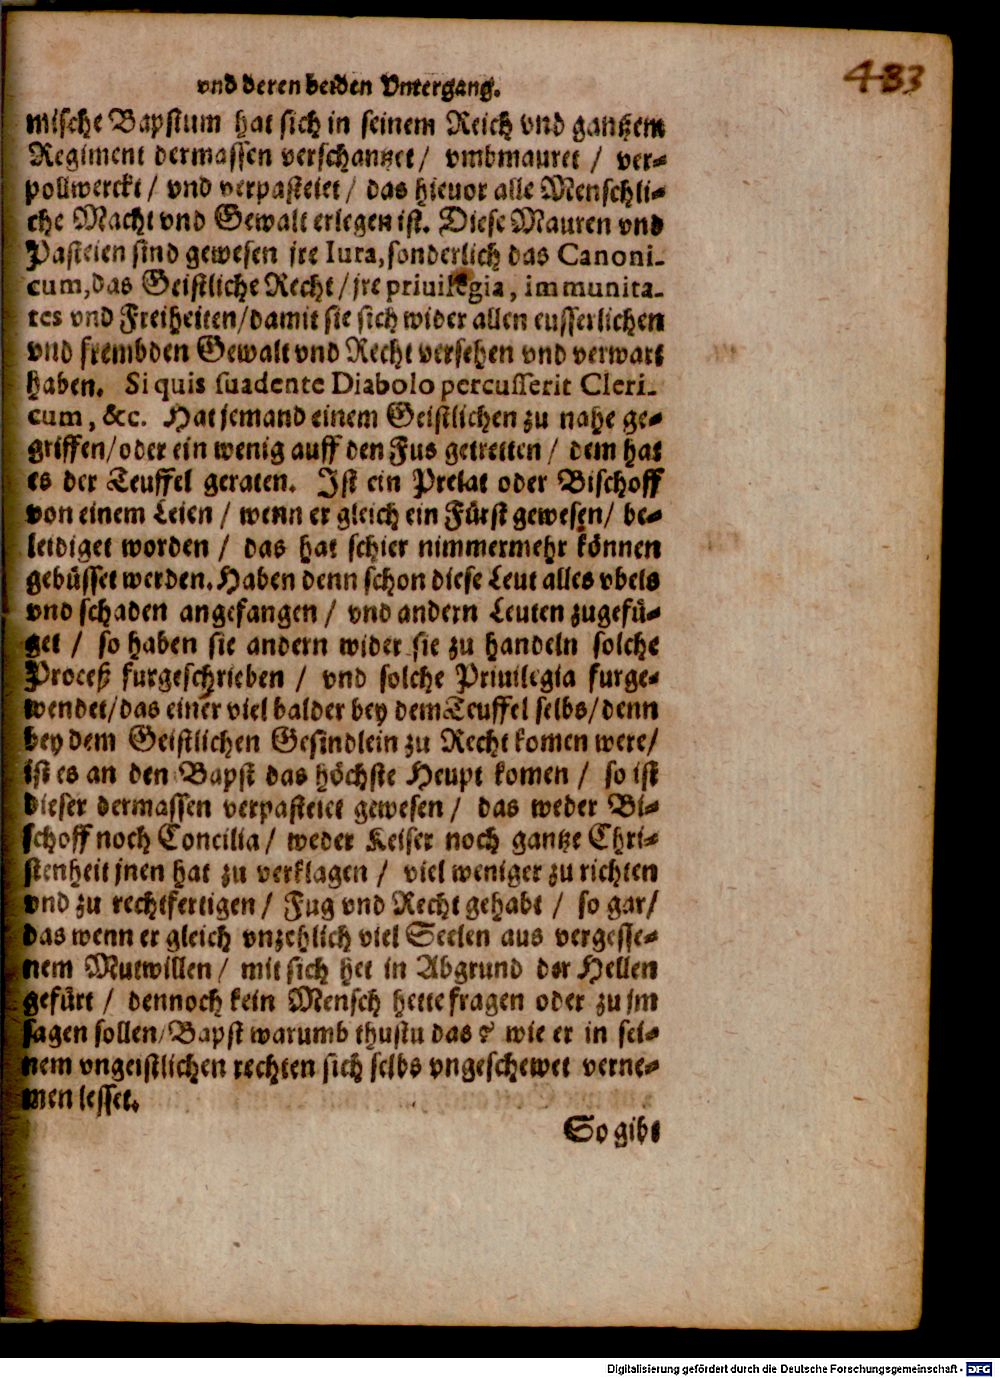 vnd deren beiden Vntergang.
433
mische Bapstum hat sich in seinem Reich vnd gantzem
Regiment dermassen verschantzet / vmbmauret / ver-
pollwerckt / vnd verpasteiet / das hieuor alle Menschli-
che Macht vnd Gewalt erlegen ist. Diese Mauren vnd
Pasteien sind gewesen jre Iura, sonderlich das Canoni-
cum, das Geistliche Recht / jre priuilegia, immunita-
tes vnd Freiheiten / damit sie sich wider allen eusserlichen
vnd frembden Gewalt vnd Recht versehen vnd verwart
haben. Si quis suadente Diabolo percusserit Cleri-
cum, &c. Hat jemand einem Geistlichen zu nahe ge-
griffen / oder ein wenig auff den Fus getretten / dem hat
es der Teuffel geraten. Ist ein Prelat oder Bischoff
von einem Leien / wenn er gleich ein Fürst gewesen / be-
leidiget worden / das hat schier nimmermehr können
gebüsset werden. Haben denn schon diese Leut alles vbels
vnd schaden angefangen / vnd andern Leuten zugefü-
get / so haben sie andern wider sie zu handeln solche
Proceß furgeschrieben / vnd solche Priuilegia furge-
wendet / das einer viel balder bey dem Teuffel selbs / denn
bey dem Geistlichen Gesindlein zu Recht komen were /
ist es an den Bapst das höchste Heupt komen / so ist
dieser dermassen verpasteiet gewesen / das weder Bi-
schoff noch Concilia / weder Keiser noch gantze Chri-
stenheit jnen hat zu verklagen / viel weniger zu richten
vnd zu rechtfertigen / Fug vnd Recht gehabt / so gar /
das wenn er gleich vnzehlich viel Seelen aus vergesse-
nem Mutwillen / mit sich het in Abgrund der Hellen
gefürt / dennoch kein Mensch hette fragen oder zu jm
sagen sollen / Bapst warumb thustu das ? wie er in sei-
nem vngeistlichen rechten sich selbs vngeschewet verne-
men lesset.
So gibt
Digitalisierung gefördert durch die Deutsche Forschungsgemeinschaft - DFG